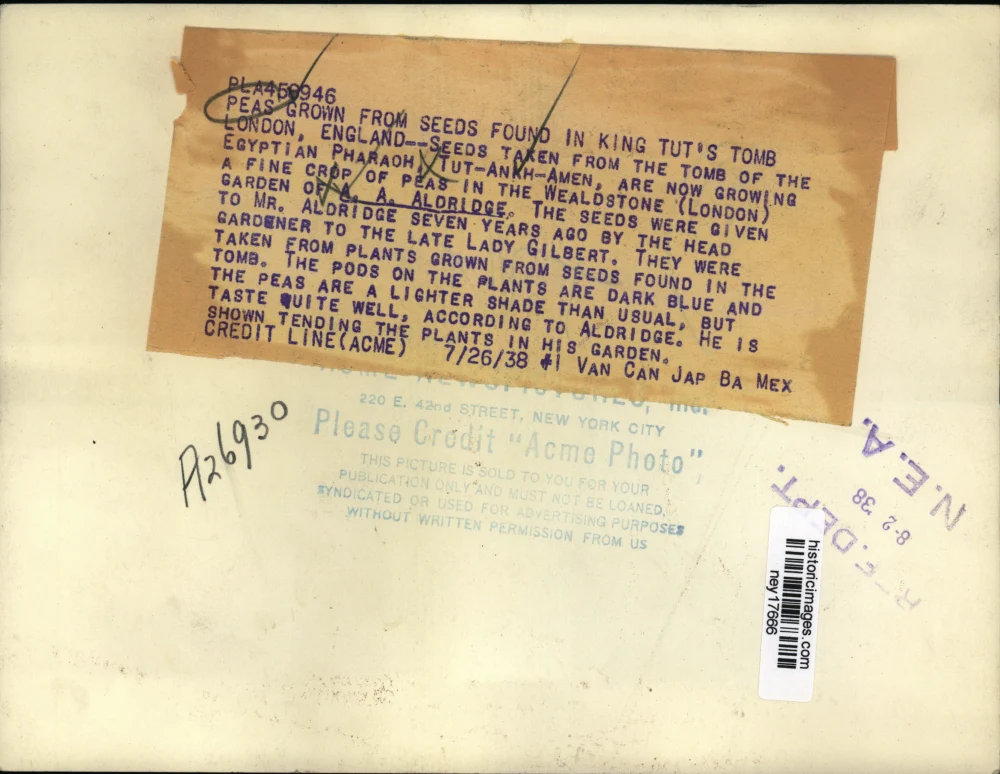 PLA459946
PEAS GROWN FROM SEEDS FOUND IN KING TUT'S TOMB
LONDON, ENGLAND--SEEDS TAKEN FROM THE TOMB OF THE
EGYPTIAN PHARAOH, TUT-ANKH-AMEN, ARE NOW GROWING
A FINE CROP OF PEAS IN THE WEALDSTONE (LONDON)
GARDEN OF A. A. ALDRIDGE. THE SEEDS WERE GIVEN
TO MR. ALDRIDGE SEVEN YEARS AGO BY THE HEAD
GARDENER TO THE LATE LADY GILBERT. THEY WERE
TAKEN FROM PLANTS GROWN FROM SEEDS FOUND IN THE
TOMB. THE PODS ON THE PLANTS ARE DARK BLUE AND
THE PEAS ARE A LIGHTER SHADE THAN USUAL, BUT
TASTE QUITE WELL, ACCORDING TO ALDRIDGE. HE IS
SHOWN TENDING THE PLANTS IN HIS GARDEN.
CREDIT LINE(ACME) 7/26/38 #1 VAN CAN JAP BA MEX
220 E. 42nd STREET, NEW YORK CITY
Please Credit "Acme Photo"
THIS PICTURE IS SOLD TO YOU FOR YOUR
PUBLICATION ONLY AND MUST NOT BE LOANED,
SYNDICATED OR USED FOR ADVERTISING PURPOSES
WITHOUT WRITTEN PERMISSION FROM US
A26930
N.E.A.
8-2 '38
DEPT.
historicimages.com
ney17666